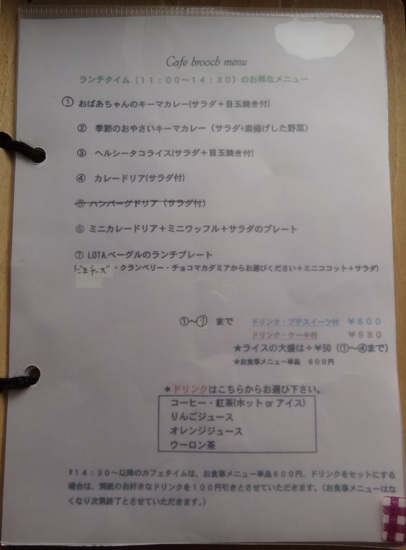 Cafe brooch menu
ランチタイム（11：00～14：30）のお得なメニュー
① おばあちゃんのキーマカレー(サラダ＋目玉焼き付)
② 季節のおやさいキーマカレー（サラダ+素揚げした野菜）
③ ヘルシータコライス(サラダ＋目玉焼き付)
④ カレードリア(サラダ付)
⑤ ハンバーグドリア（サラダ付）
⑥ ミニカレードリア＋ミニワッフル＋サラダのプレート
⑦ LOTAベーグルのランチプレート
・クランベリー・チョコマカダミアからお選びください＋ミニココット＋サラダ）
①～⑦ まで ドリンク・プチスイーツ付 ￥800
ドリンク・ケーキ付 ￥980
★ライスの大盛は＋￥50（①～④まで）
★お食事メニュー単品 600円
＊ドリンクはこちらからお選び下さい。
コーヒー・紅茶(ホット or アイス)
りんごジュース
オレンジジュース
ウーロン茶
＊14：30～以降のカフェタイムは、お食事メニュー単品600円、ドリンクをセットにする
場合は、別紙のお好きなドリンクを100円引きとさせていただきます。（お食事メニューはな
くなり次第終了とさせていただきます。）